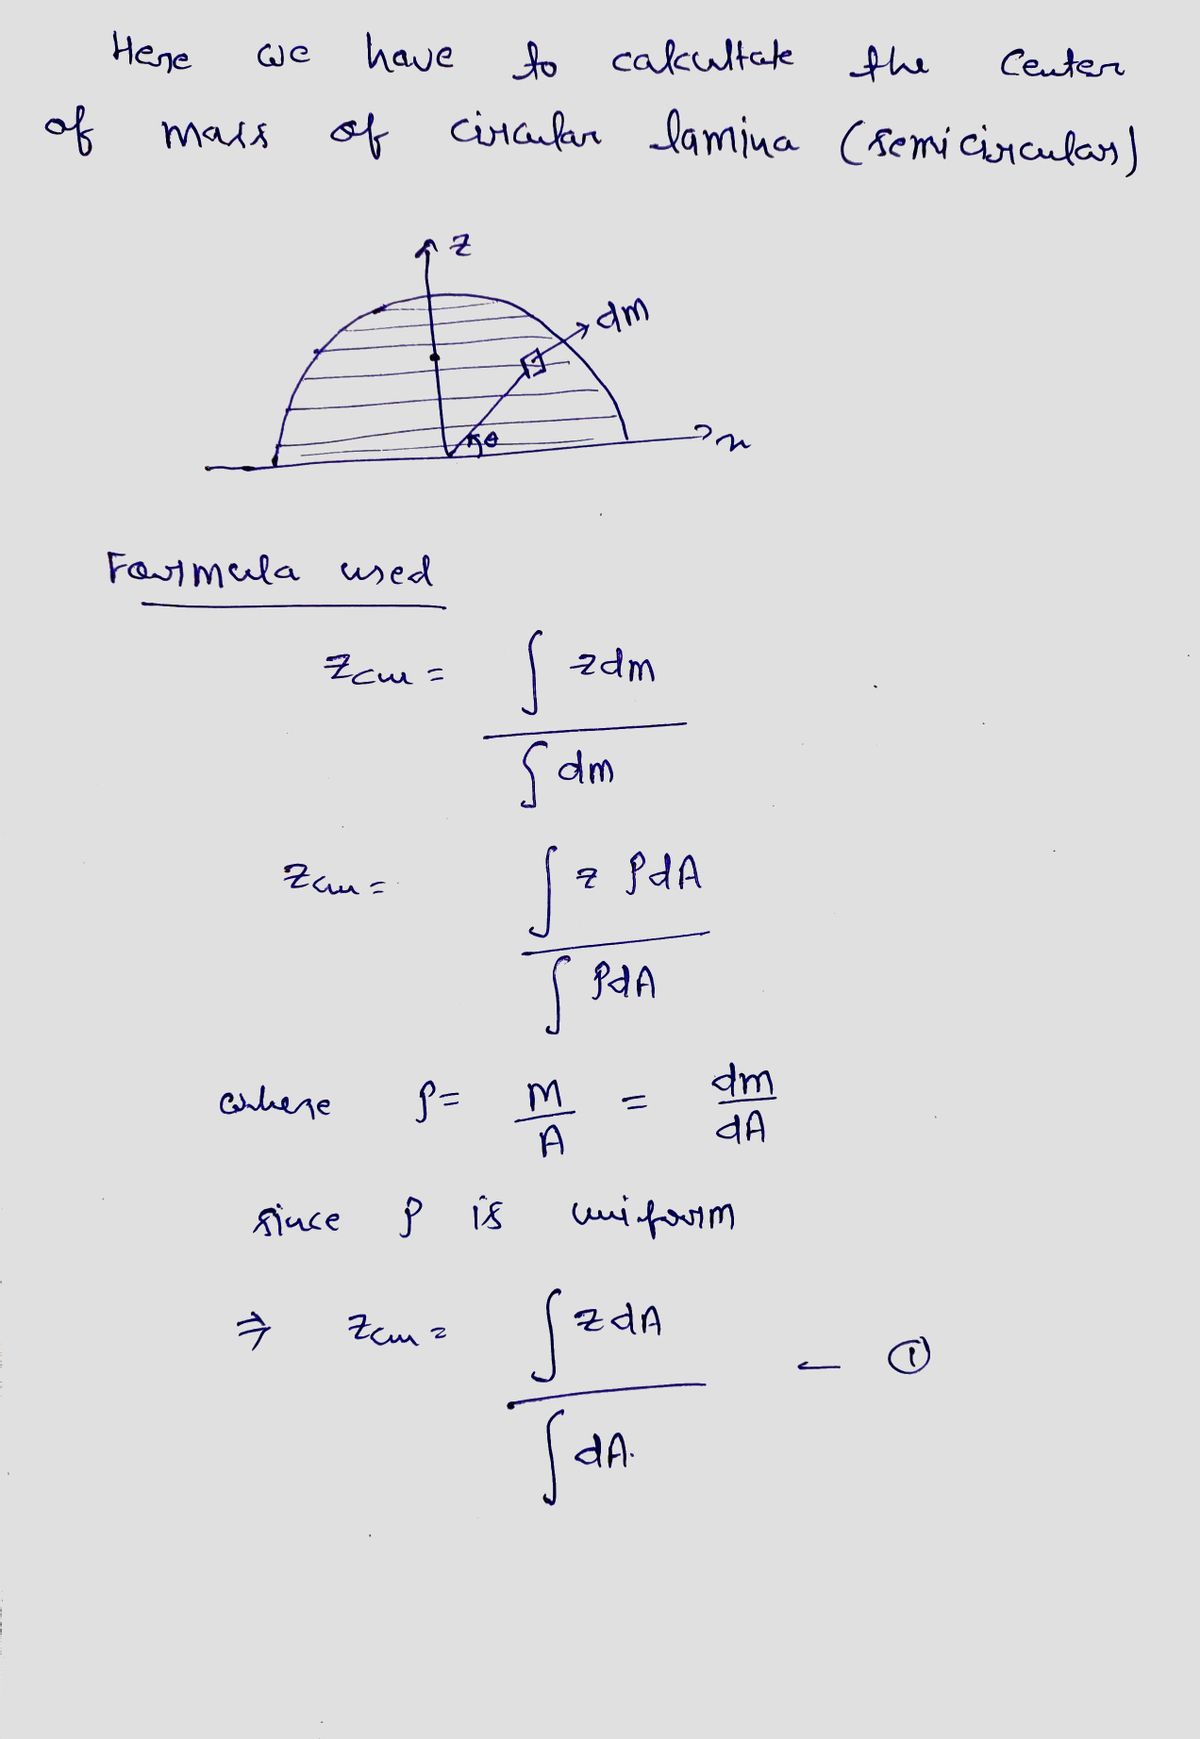 Here we have to calcultate the Center
of mass of circular lamina (semicircular)
z
dm
θ
x
Formula used
Zcm = ∫ z dm
∫ dm
Zcm = ∫ z ρdA
∫ ρdA
where ρ = M/A = dm/dA
since ρ is uniform
⇒ Zcm = ∫ z dA — ①
∫ dA.